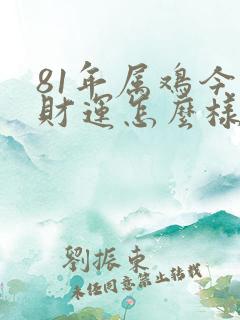 81年属鸡今
财运怎麽样
劉振東
未经同意禁止转载